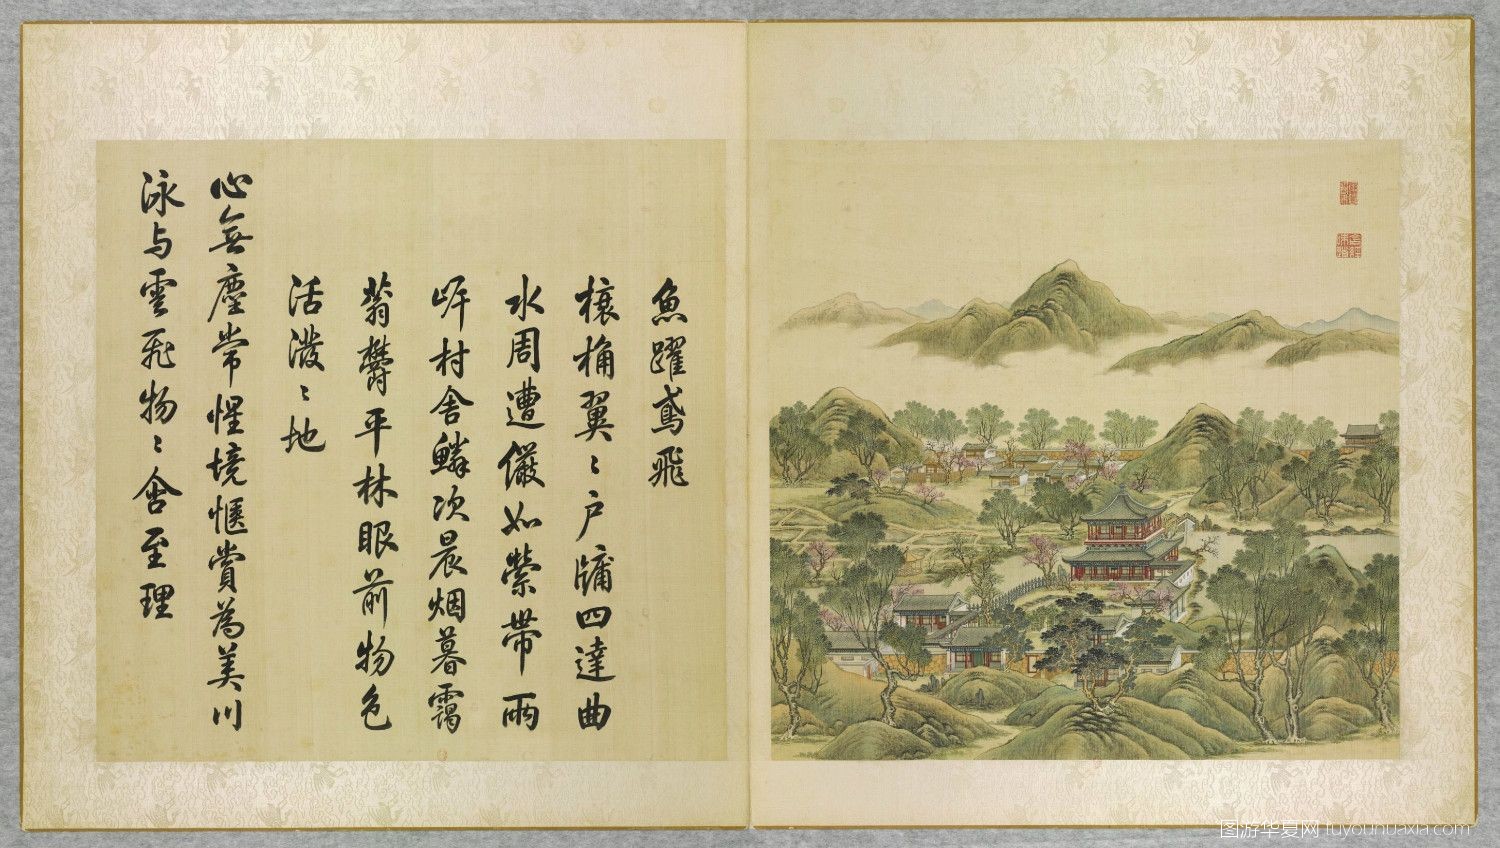 魚躍鳶飛
榱桷翼〻戶牖四達曲
水周遭儼如縈帶兩
岸村舍鱗次晨烟暮靄
蓊欝平林眼前物色
活潑〻地
心無塵常惺境愜賞為美川
泳与雲飛物〻含至理
图游华夏网 tuyouhuaxia.com